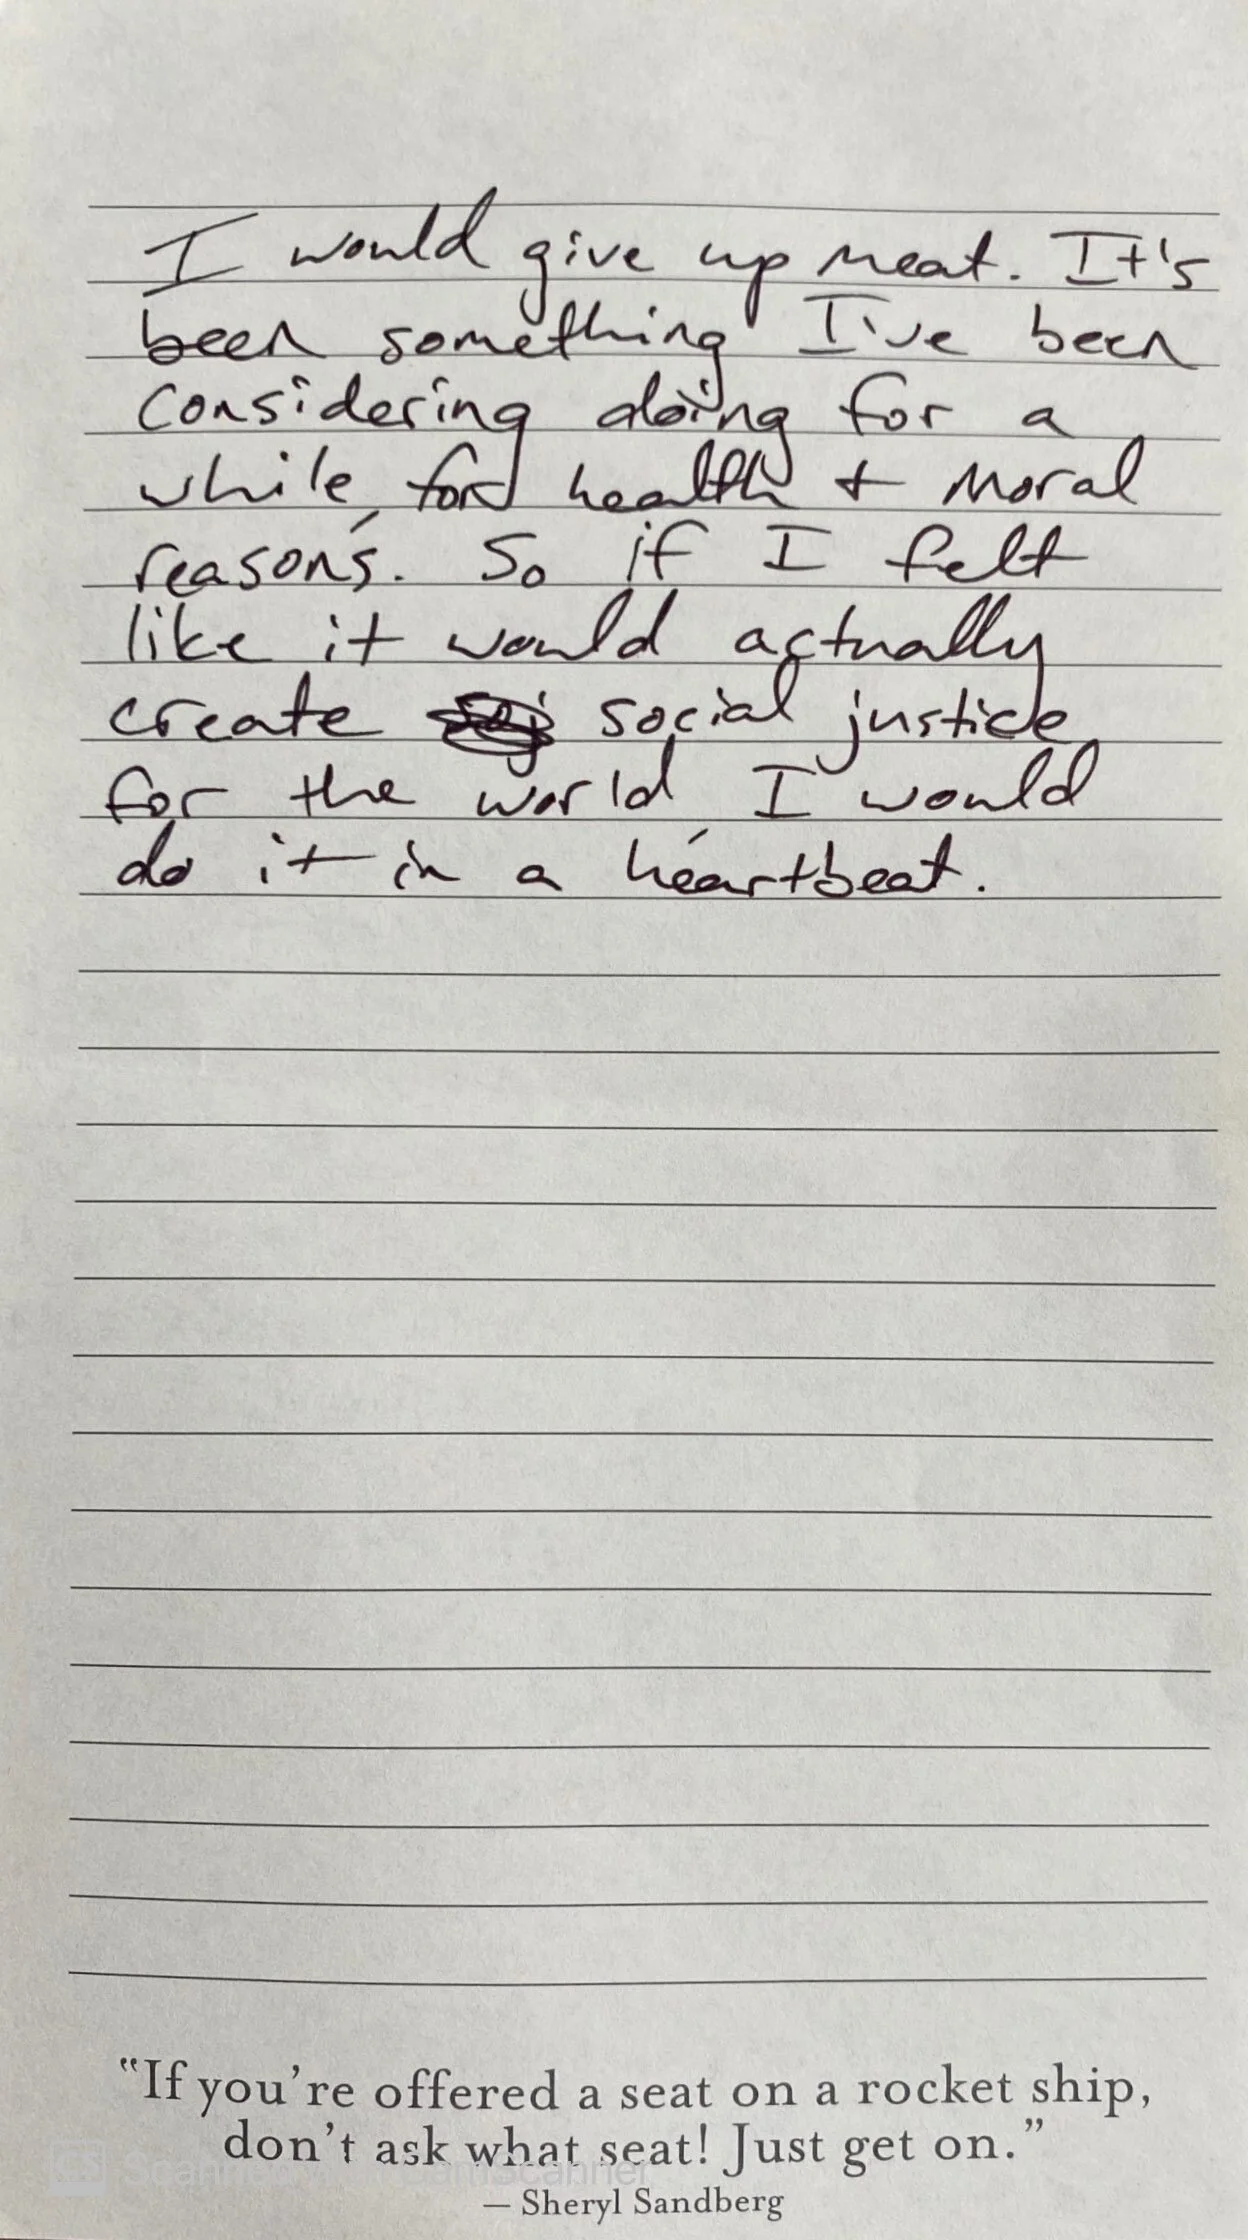 I would give up meat. It's
been something I've been
considering doing for a
while, for health + moral
reasons. So if I felt
like it would actually
create social justice
for the world, I would
do it in a heartbeat.
"If you're offered a seat on a rocket ship,
don't ask what seat! Just get on."
— Sheryl Sandberg